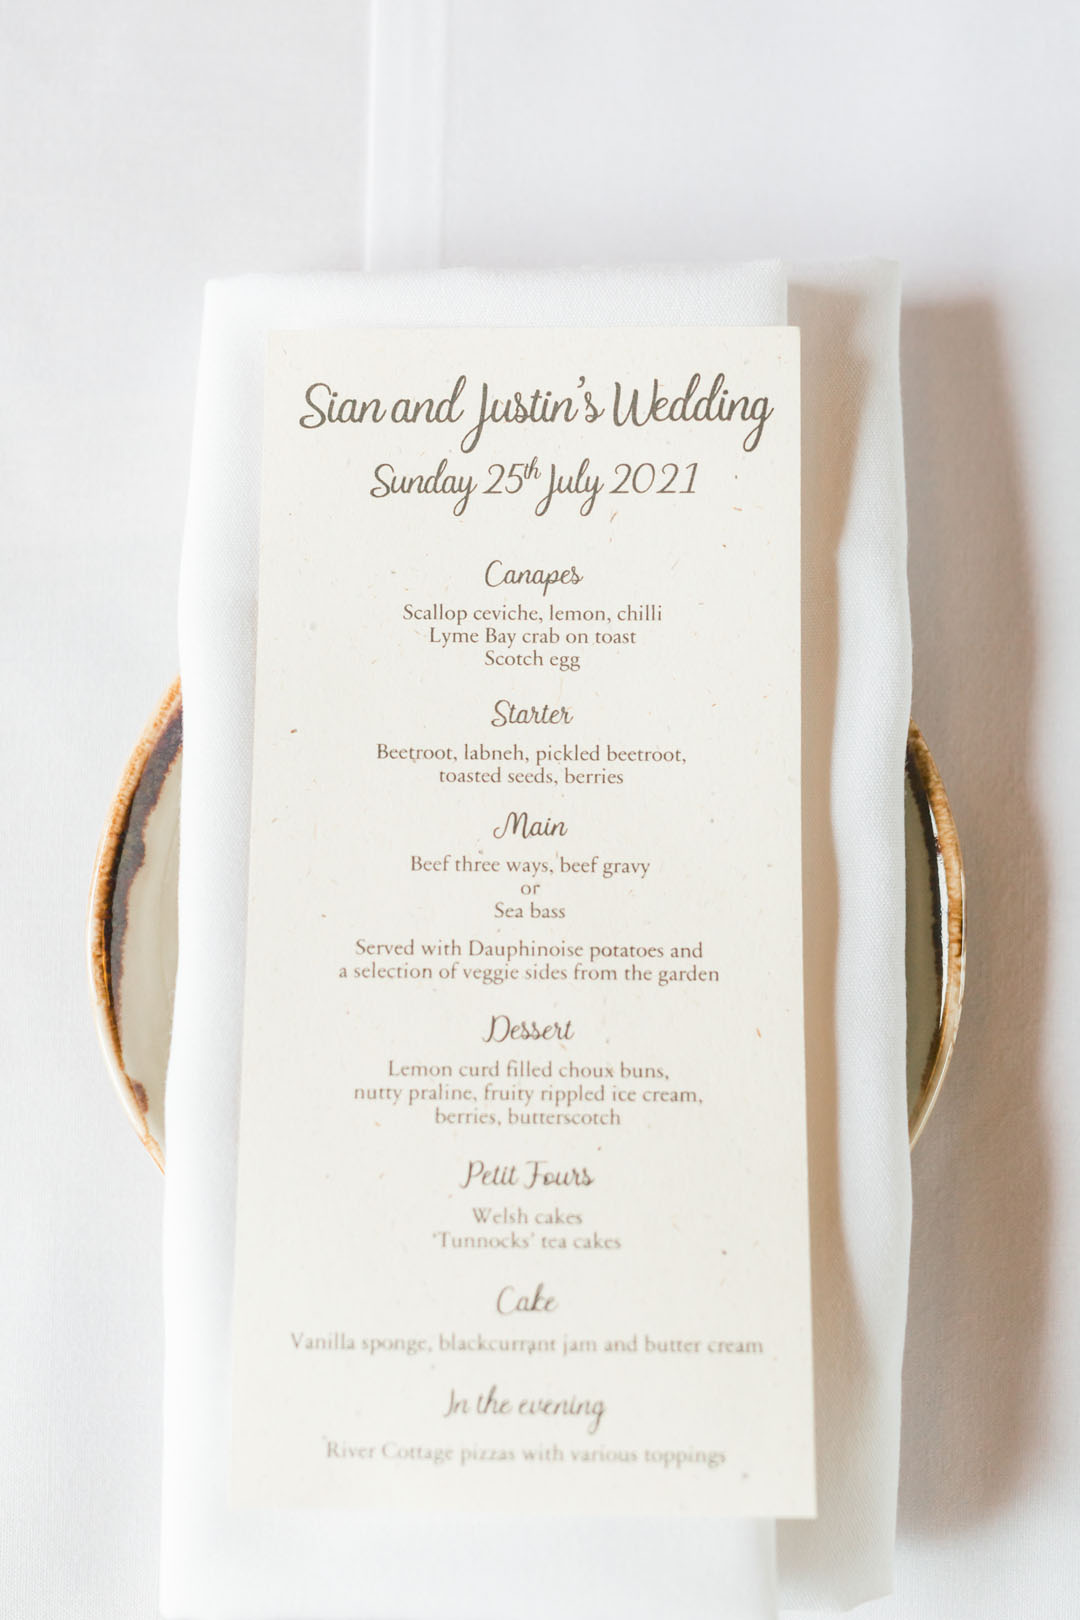 Sian and Justin's Wedding
Sunday 25th July 2021
Canapes
Scallop ceviche, lemon, chilli
Lyme Bay crab on toast
Scotch egg
Starter
Beetroot, labneh, pickled beetroot,
toasted seeds, berries
Main
Beef three ways, beef gravy
or
Sea bass
Served with Dauphinoise potatoes and
a selection of veggie sides from the garden
Dessert
Lemon curd filled choux buns,
nutty praline, fruity rippled ice cream,
berries, butterscotch
Petit Fours
Welsh cakes
'Tunnocks' tea cakes
Cake
Vanilla sponge, blackcurrant jam and butter cream
In the evening
River Cottage pizzas with various toppings